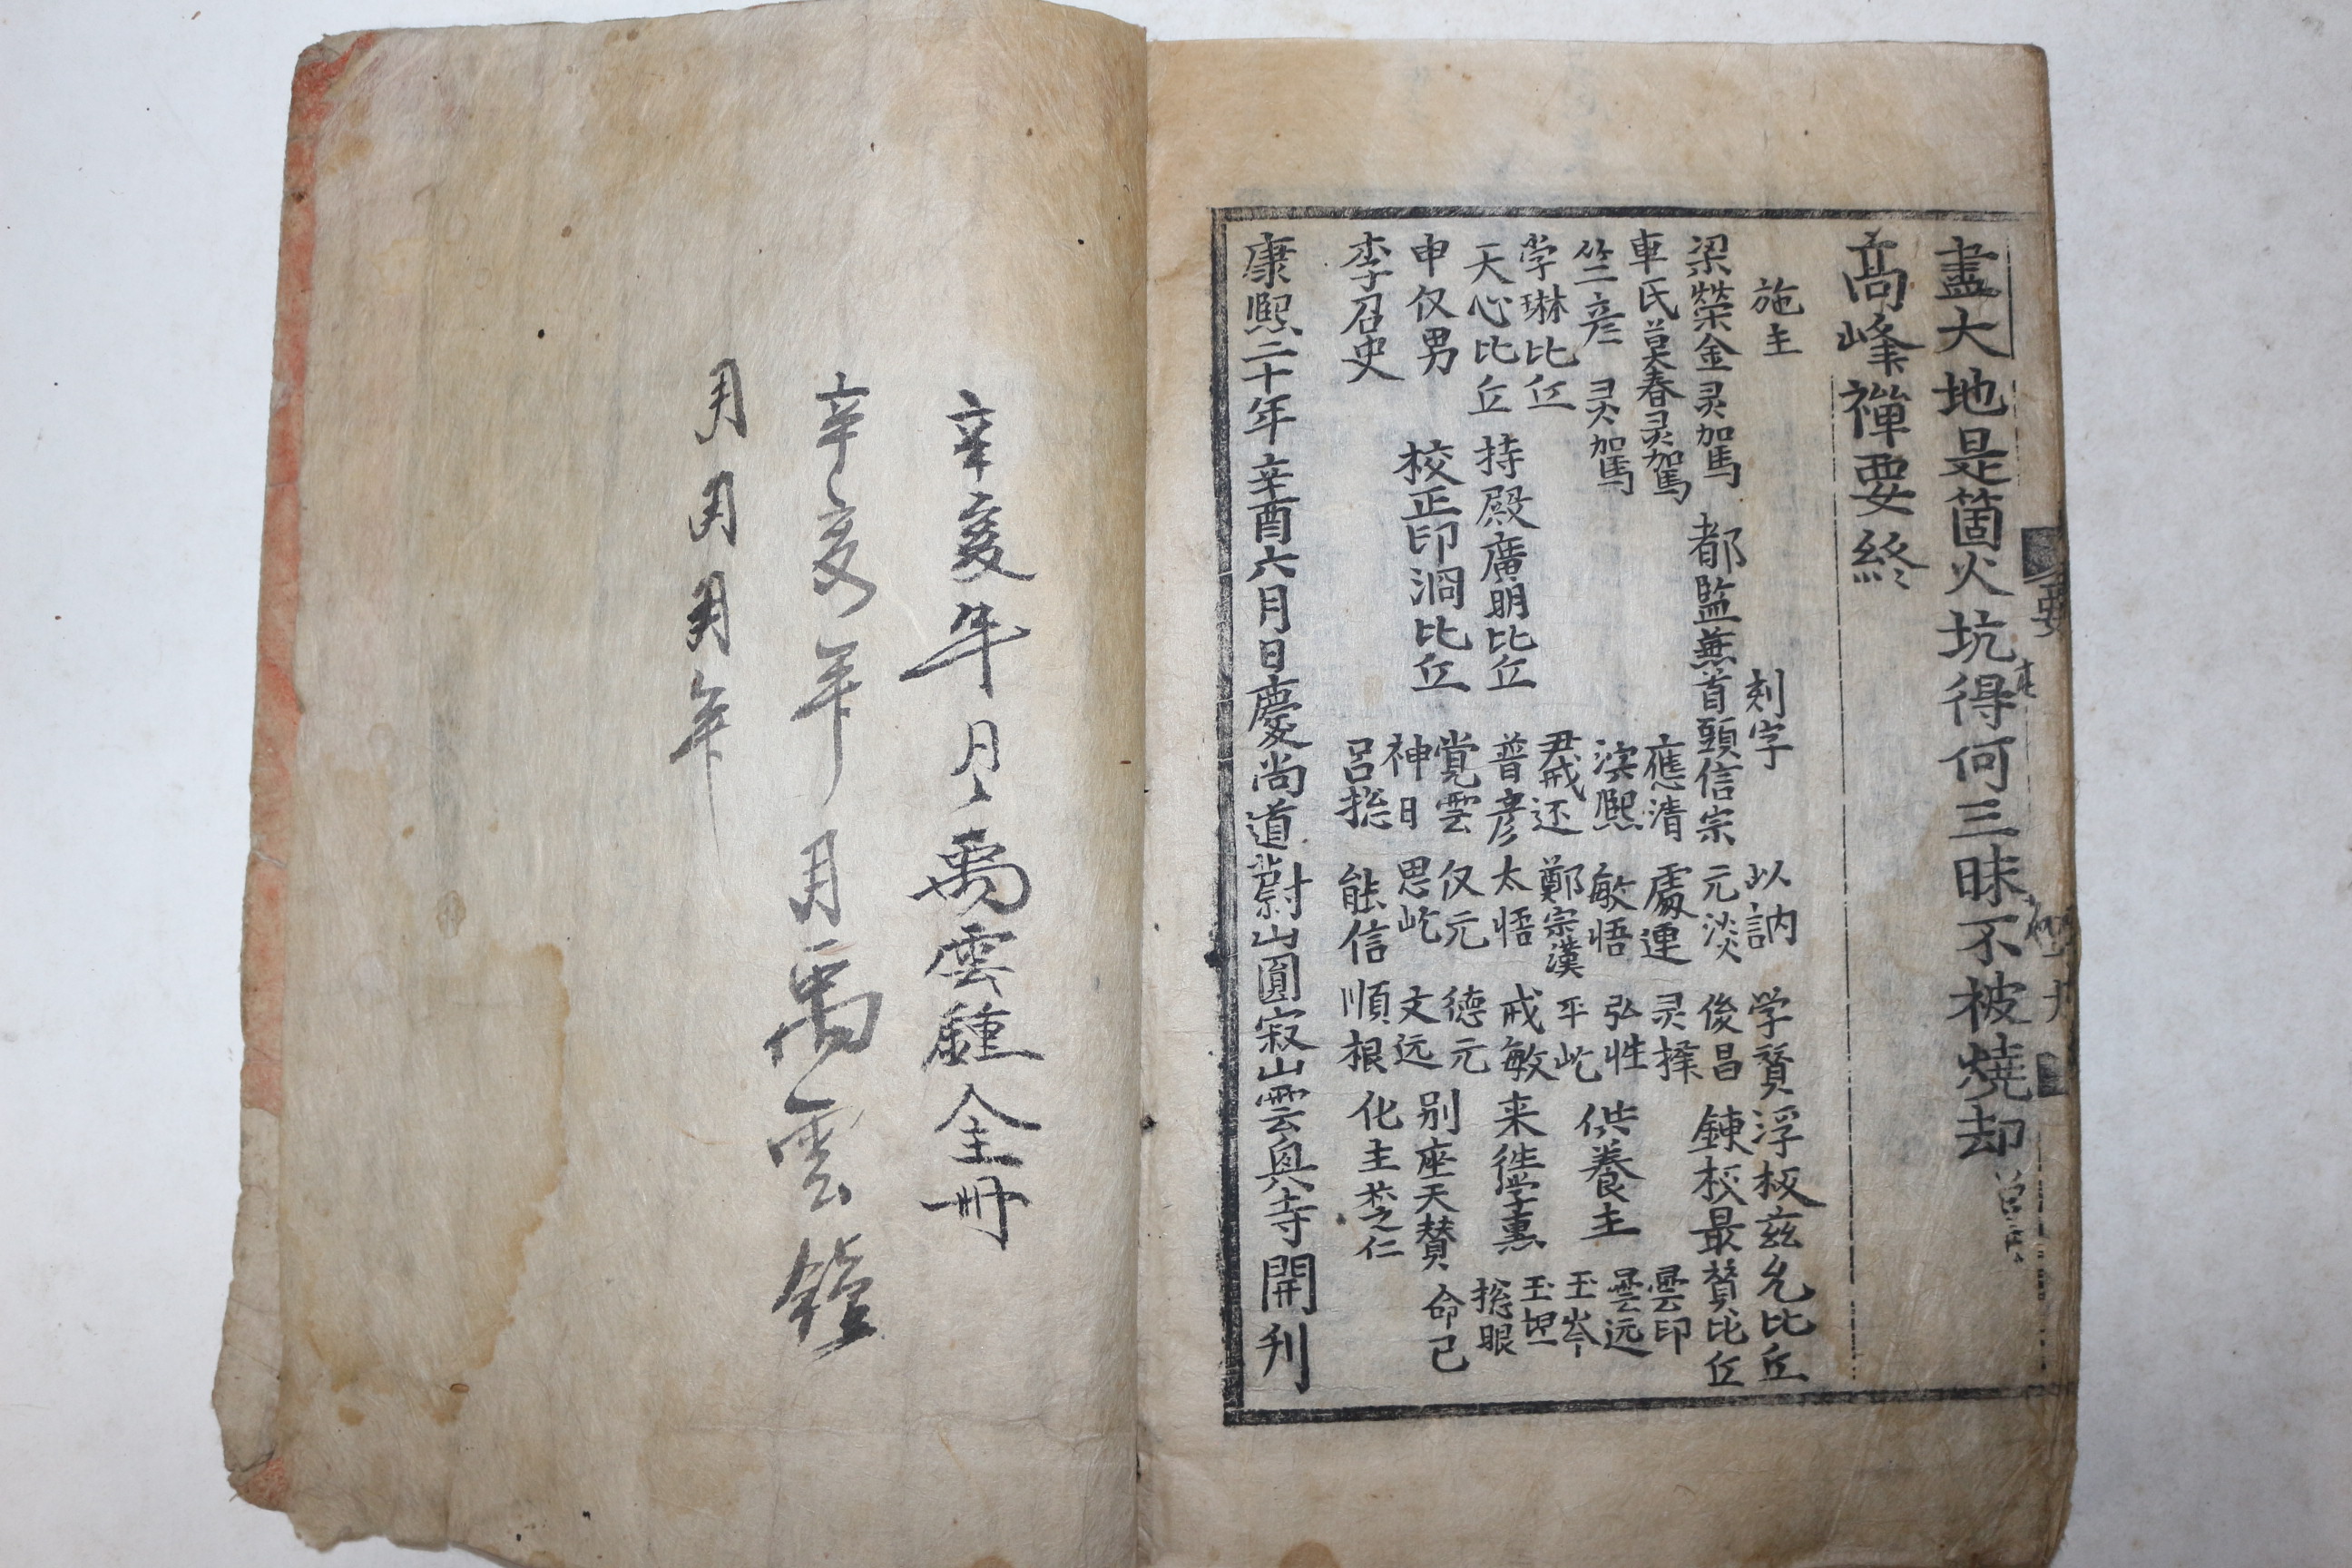 盡大地是箇火坑得何三昧不被燒却
高峰禪要終
施主 刻字 以訥 学賛 浮板玆允比丘
梁榮金灵駕 都監兼首頭信宗 元淡 俊昌 鍊板最賛比丘
車氏莫春灵駕 應清 處連 灵擇 曇印
竺彦灵駕 淙熙 敏悟 弘性 供養主 曇远
学琳比丘 尹戒还 鄭宗漢 平屹 玉岑
天心比丘 持殿廣明比丘 普彦 太悟 戒敏 来徃学熏 玉坦
申仅男 校正印泂比丘 覚雲 仅元 德元 別座天賛 捴眼
神日 思屹 文远 命己
李召史 呂捴 能信 順根 化主楚仁
康熙二十年辛酉六月日慶尚道蔚山圓寂山雲興寺開刊
辛亥年月 禹雲鍾全冊
辛亥年月禹雲鍾
月月月年